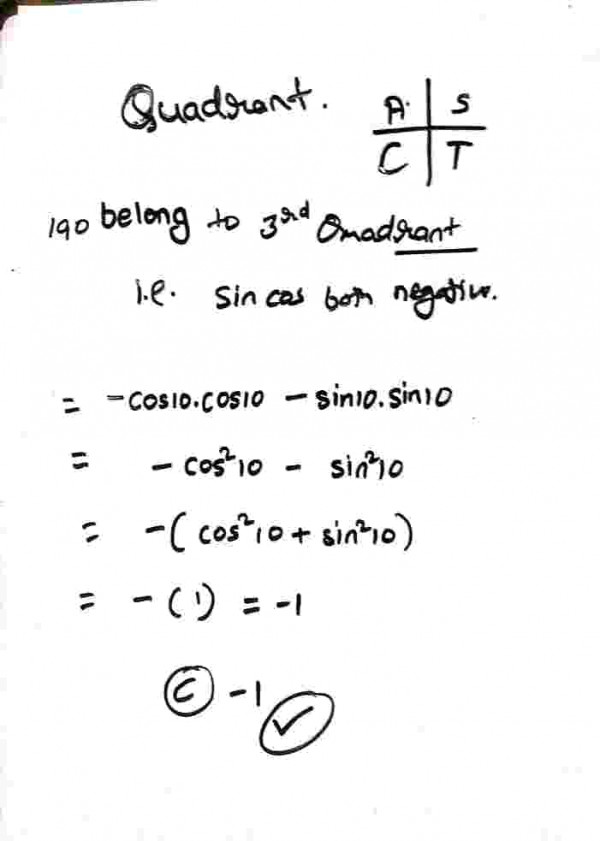 Quadrant.
A S
C T
190 belong to 3rd Quadrant
i.e. sin cos both negative.
= -cos10.cos10 - sin10.sin10
= - cos²10 - sin²10
= -( cos²10 + sin²10)
= - (1) = -1
C -1 ✓